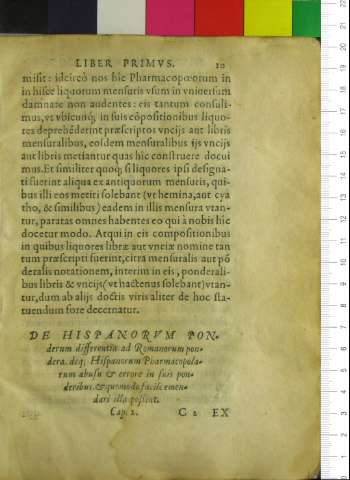 LIBER PRIMVS. 10
misit: idcirco nos hic Pharmacopœorum in
in hisce liquorum mensuris vsum in vniuersum
damnare non audentes: eis tantum consuli-
mus, vt vbicunq; in suis cōpositionibus liquo-
res deprehēderint præscriptos vncijs aut libris
mensuralibus, eosdem mensuralibus ijs vncijs
aut libris metiantur quas hic construere docui
mus. Et similiter quoq; si liquores ipsi designa-
ti fuerint aliqua ex antiquorum mensuris, qui-
bus illi eos metiri solebant (vt hemina, aut cya
tho, & similibus) eadem in illis mensura vtan-
tur, paratas omnes habentes eo qui à nobis hic
docetur modo. Atqui in eis compositionibus
in quibus liquores libræ aut vnciæ nomine tan
tum præscripti fuerint, citra mensuralis aut pō
deralis notationem, interim in eis, ponderali-
bus libris & vncijs (vt hactenus solebant) vtan-
tur, dum ab alijs doctis viris aliter de hoc sta-
tuendum fore decernatur.
DE HISPANORVM PON-
derum differentia ad Romanorum pon-
dera. deq; Hispanorum Pharmacopola-
rum abusu & errore in suis pon-
deribus. & quomodo facile emen-
dari illa possint.
Cap. 2. C 2 EX